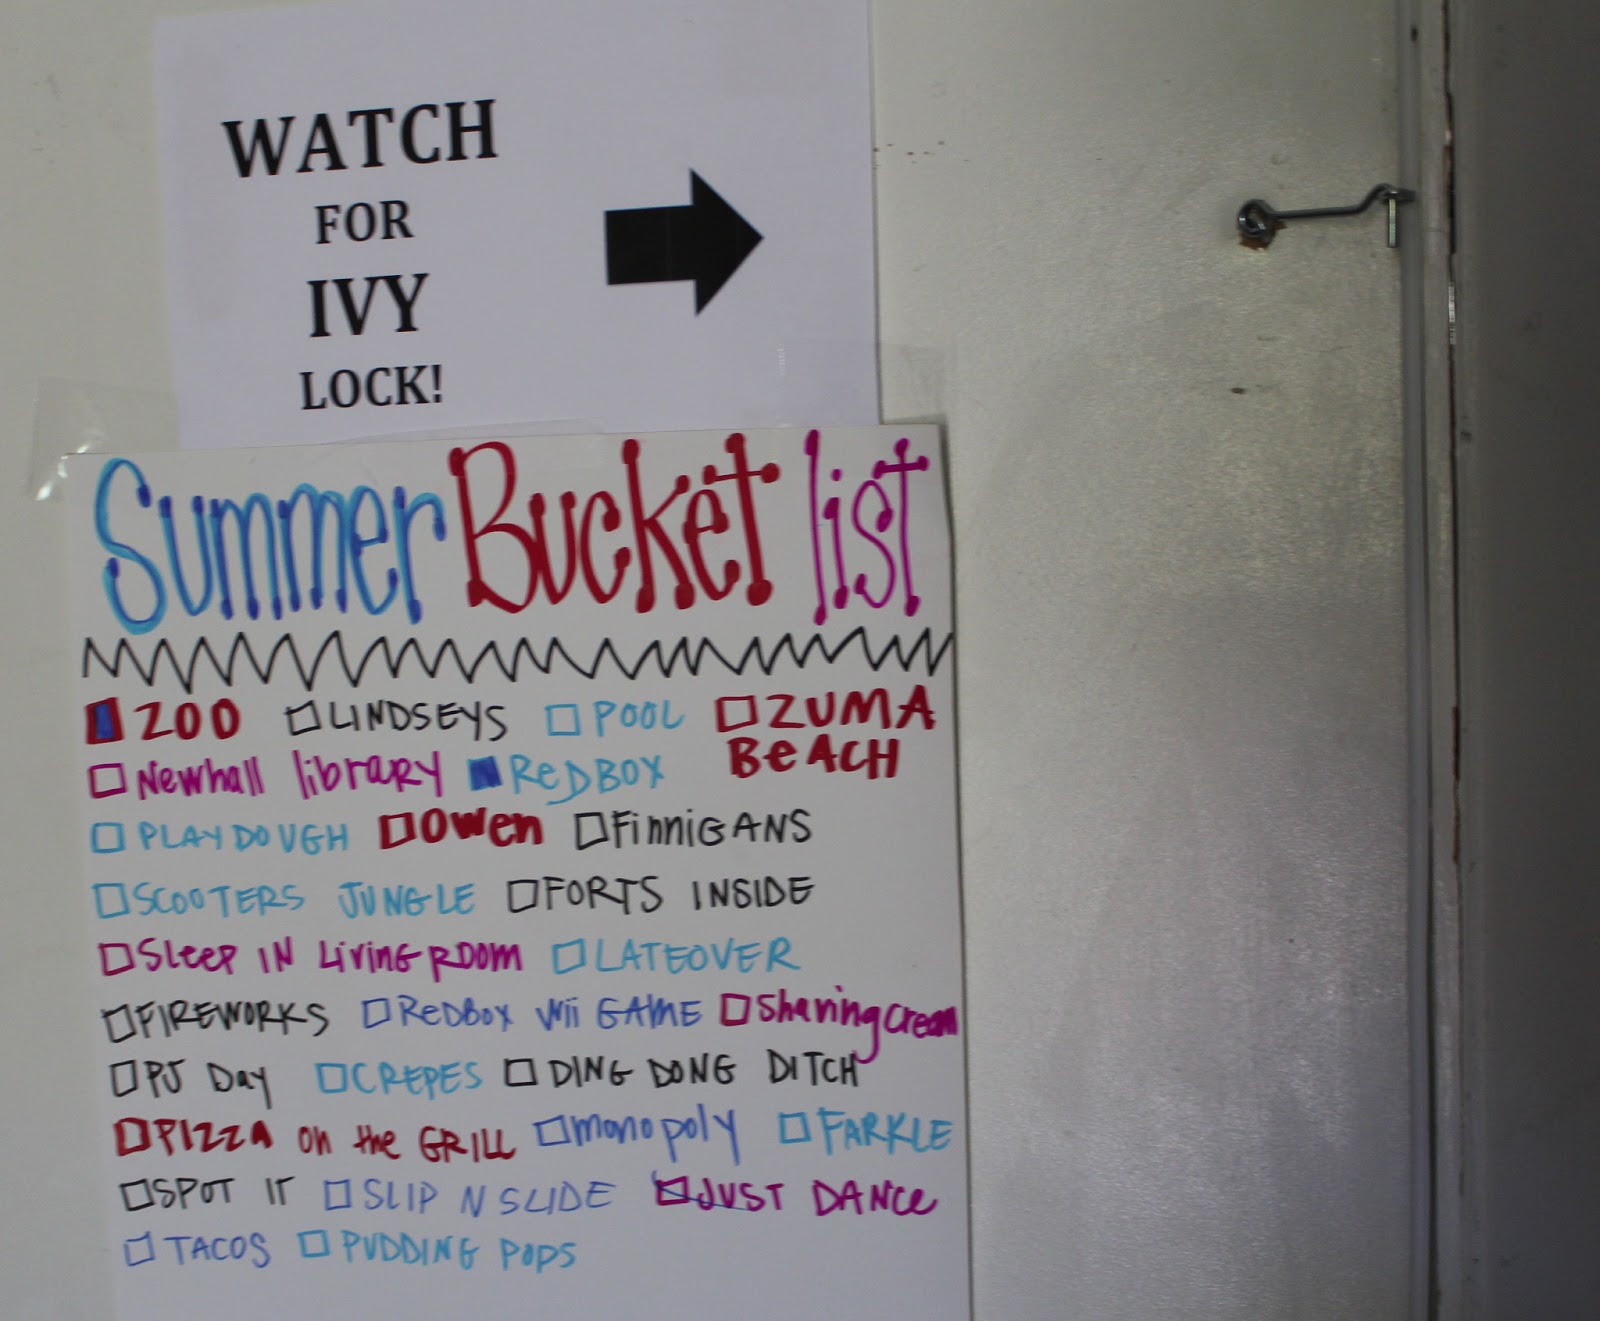 WATCH
FOR
IVY
LOCK!
Summer Bucket list
ZOO LINDSEYS POOL ZUMA BEACH
Newhall library REDBOX
PLAYDOUGH Owen FinniGANS
SCOOTERS JUNGLE FORTS INSIDE
Sleep IN Living room LATEOVER
FIREWORKS ReDBox Wii GAME Shaving cream
PJ Day CREPES DING DONG DITCH
PIZZA on the GRILL monopoly FARKLE
SPOT IT SLIP N SLIDE JUST DANCe
TACOS PUDDING POPS